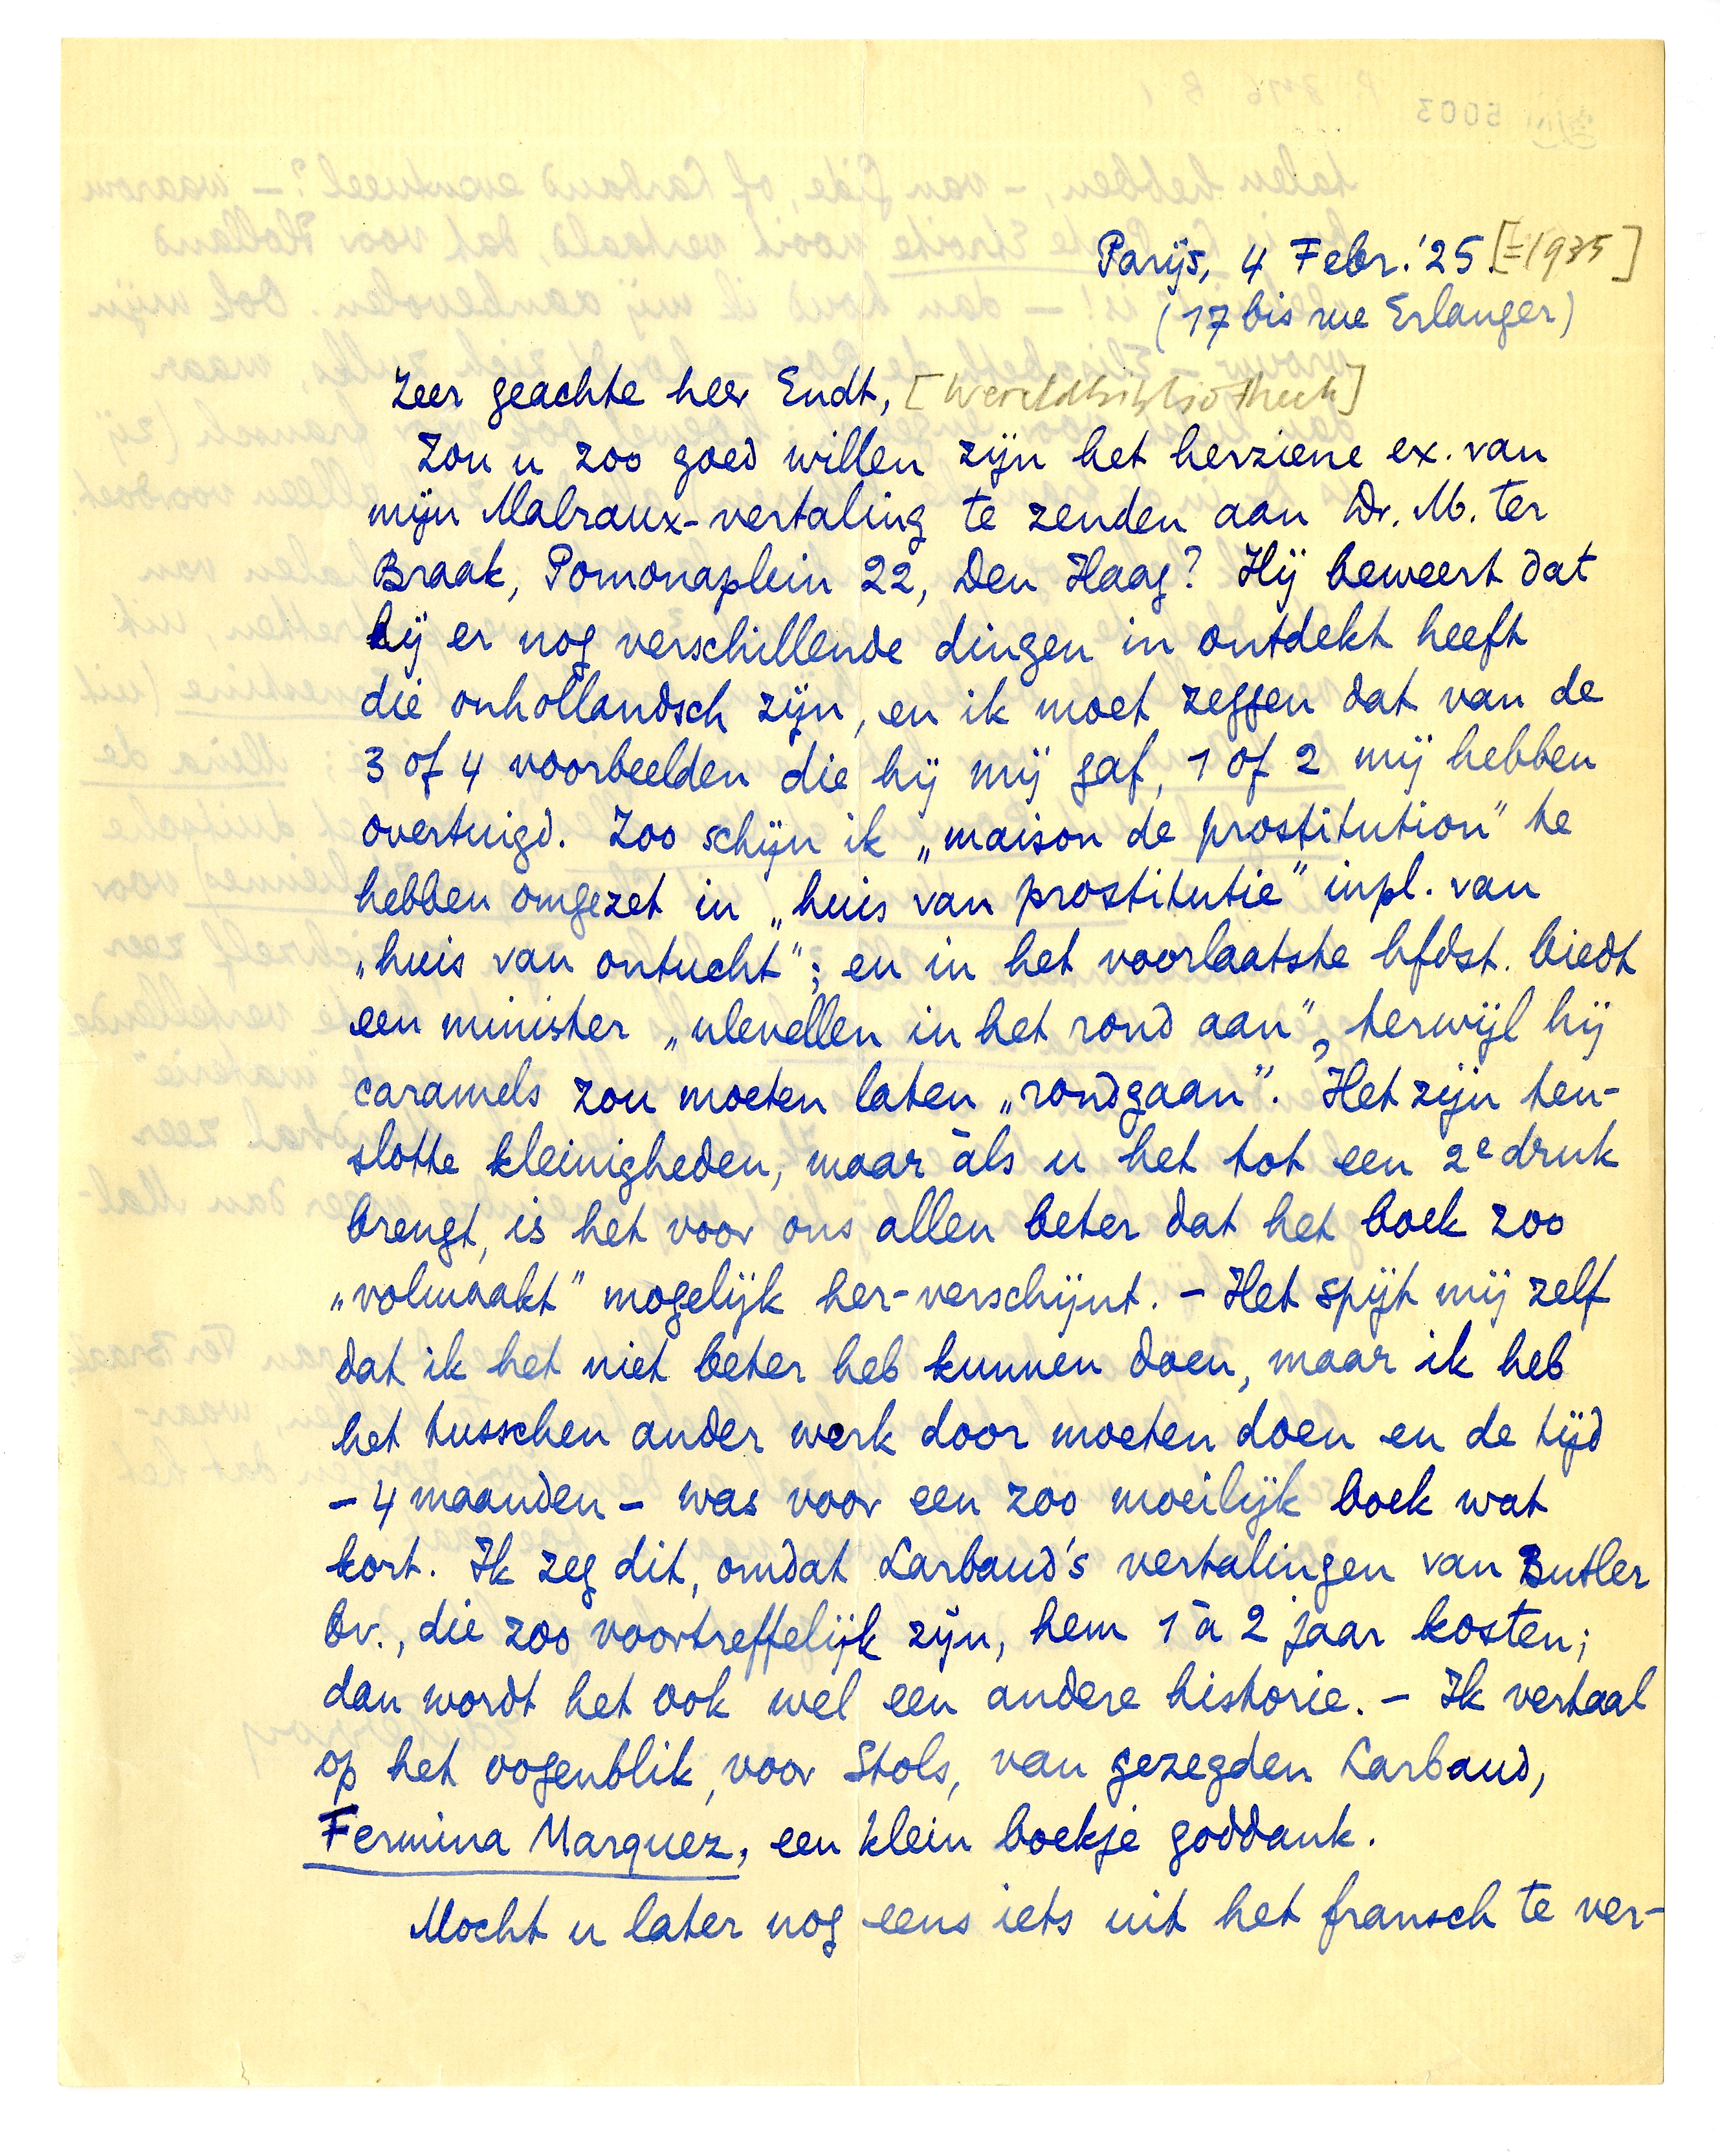 Parijs, 4 Febr. '25. [=1935]
(17 bis rue Erlanger)
Zeer geachte heer Endt, [Wereldbibliotheek]
Zou u zoo goed willen zijn het herziene ex. van
mijn Malraux-vertaling te zenden aan Dr. M. ter
Braak, Pomonaplein 22, Den Haag? Hij beweert dat
hij er nog verschillende dingen in ontdekt heeft
die onhollandsch zijn, en ik moet zeggen dat van de
3 of 4 voorbeelden die hij mij gaf, 1 of 2 mij hebben
overtuigd. Zoo schijn ik „maison de prostitution" te
hebben omgezet in „huis van prostitutie" inpl. van
„huis van ontucht"; en in het voorlaatste hfdst. biedt
een minister „ulevellen in het rond aan", terwijl hij
caramels zou moeten laten „rondgaan". Het zijn ten-
slotte kleinigheden, maar àls u het tot een 2e druk
brengt, is het voor ons allen beter dat het boek zoo
„volmaakt" mogelijk her-verschijnt. – Het spijt mij zelf
dat ik het niet beter heb kunnen doen, maar ik heb
het tusschen ander werk door moeten doen en de tijd
– 4 maanden – was voor een zoo moeilijk boek wat
kort. Ik zeg dit, omdat Larbaud's vertalingen van Butler
bv., die zoo voortreffelijk zijn, hem 1 à 2 jaar kosten;
dan wordt het ook wel een andere historie. – Ik vertaal
op het oogenblik, voor Stols, van gezegden Larbaud,
Fermina Marquez, een klein boekje goddank.
Mocht u later nog eens iets uit het fransch te ver-